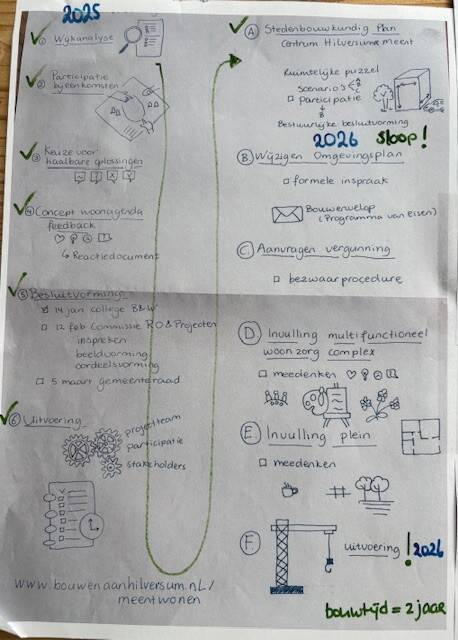 2025
① Wijkanalyse
② Participatie
bijeenkomsten
③ Keuze voor
haalbare oplossingen
④ Concept woonagenda
feedback
↳ Reactiedocument
⑤ Besluitvorming
14 jan college B&W
12 feb Commissie RO & Projecten
inspreken
beeldvorming
oordeelsvorming
5 maart gemeenteraad
⑥ Uitvoering
projectteam
participatie
stakeholders
www.bouwenaanhilversum.nl/
meentwonen
Ⓐ Stedenbouwkundig Plan
Centrum Hilversumse meent
Ruimtelijke puzzel
Scenario's A B C
participatie
B
Bestuurlijke besluitvorming
2026 Sloop!
Ⓑ Wijzigen Omgevingsplan
formele inspraak
Bouwenvelop
(Programma van eisen)
Ⓒ Aanvragen vergunning
bezwaarprocedure
Ⓓ Invulling multifunctioneel
woonzorg complex
meedenken
Ⓔ Invulling plein
meedenken
Ⓕ uitvoering ! 2026
bouwtijd = 2 jaar